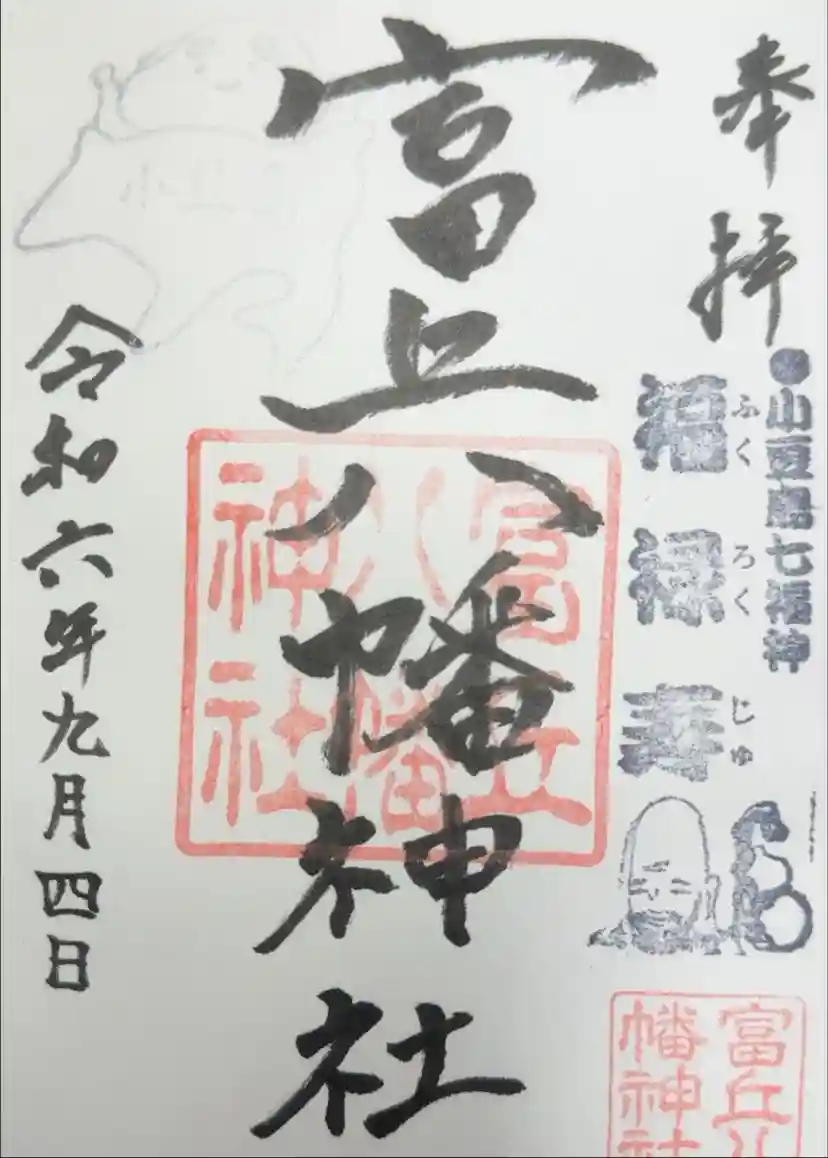 奉拝
●小豆島七福神
福禄寿
ふくろくじゅ
富丘八幡神社
富丘八幡神社
令和六年九月四日
富丘八
幡神社